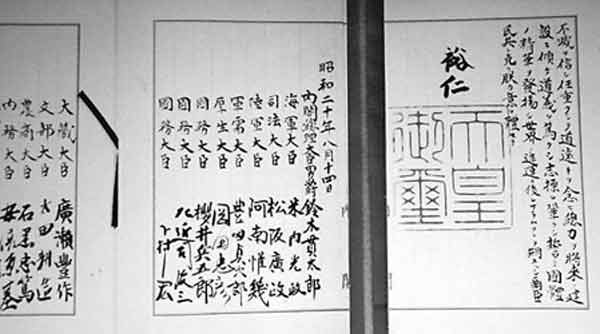 不滅ヲ信シ任重クシテ道遠キヲ念ヒ總力ヲ將來ノ建
設ニ傾ケ道義ヲ篤クシ志操ヲ鞏クシ誓テ國體
ノ精華ヲ發揚シ世界ノ進運ニ後レサラムコトヲ期スヘシ爾臣
民其レ克ク朕カ意ヲ體セヨ
裕仁
天皇
御璽
昭和二十年八月十四日
内閣總理大臣男爵 鈴木貫太郎
海軍大臣 米内光政
司法大臣 松阪廣政
陸軍大臣 阿南惟幾
軍需大臣 豐田貞次郎
厚生大臣 岡田忠彦
國務大臣 櫻井兵五郎
國務大臣 左近司政三
國務大臣 下村宏
大藏大臣 廣瀬豐作
文部大臣 太田耕造
農商大臣 石黑忠篤
内務大臣 安倍源基